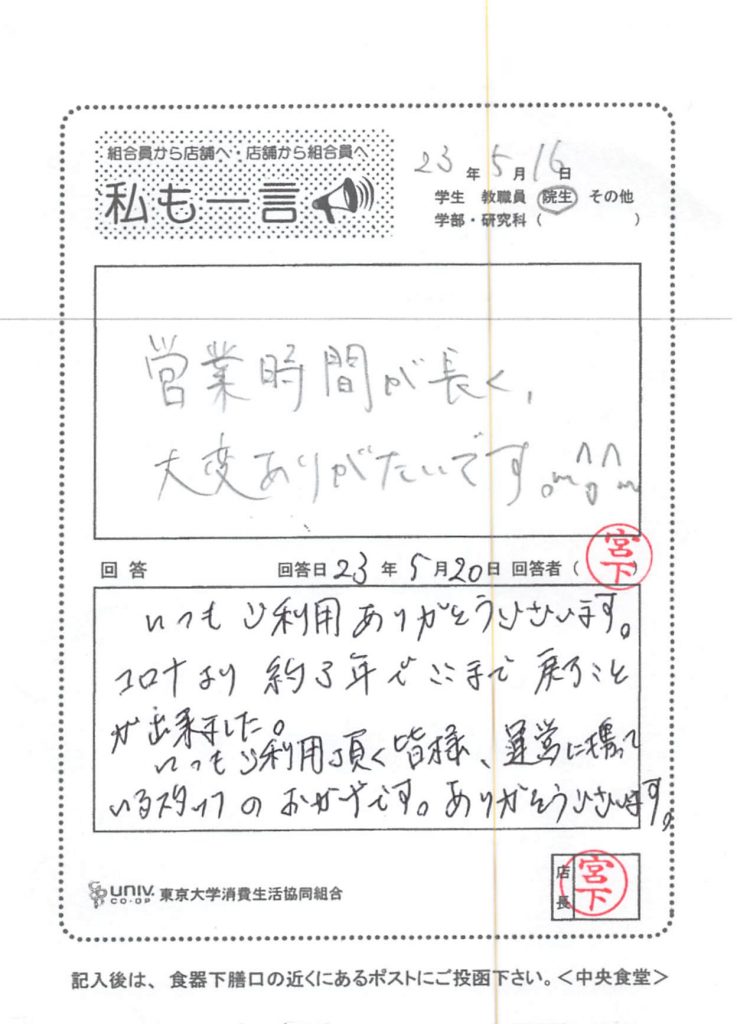 組合員から店舗へ・店舗から組合員へ
私も一言
23年5月16日
学生 教職員 院生 その他
学部・研究科（ ）
営業時間が長く、
大変ありがたいです。m^o^m
回答 回答日23年5月20日 回答者（宮下）
いつもご利用ありがとうございます。
コロナより約3年でここまで戻ること
が出来ました。
いつもご利用頂く皆様、運営に携って
いるスタッフのおかげです。ありがとうございます。
店長 宮下
UNIV. CO-OP 東京大学消費生活協同組合
記入後は、食器下膳口の近くにあるポストにご投函下さい。＜中央食堂＞